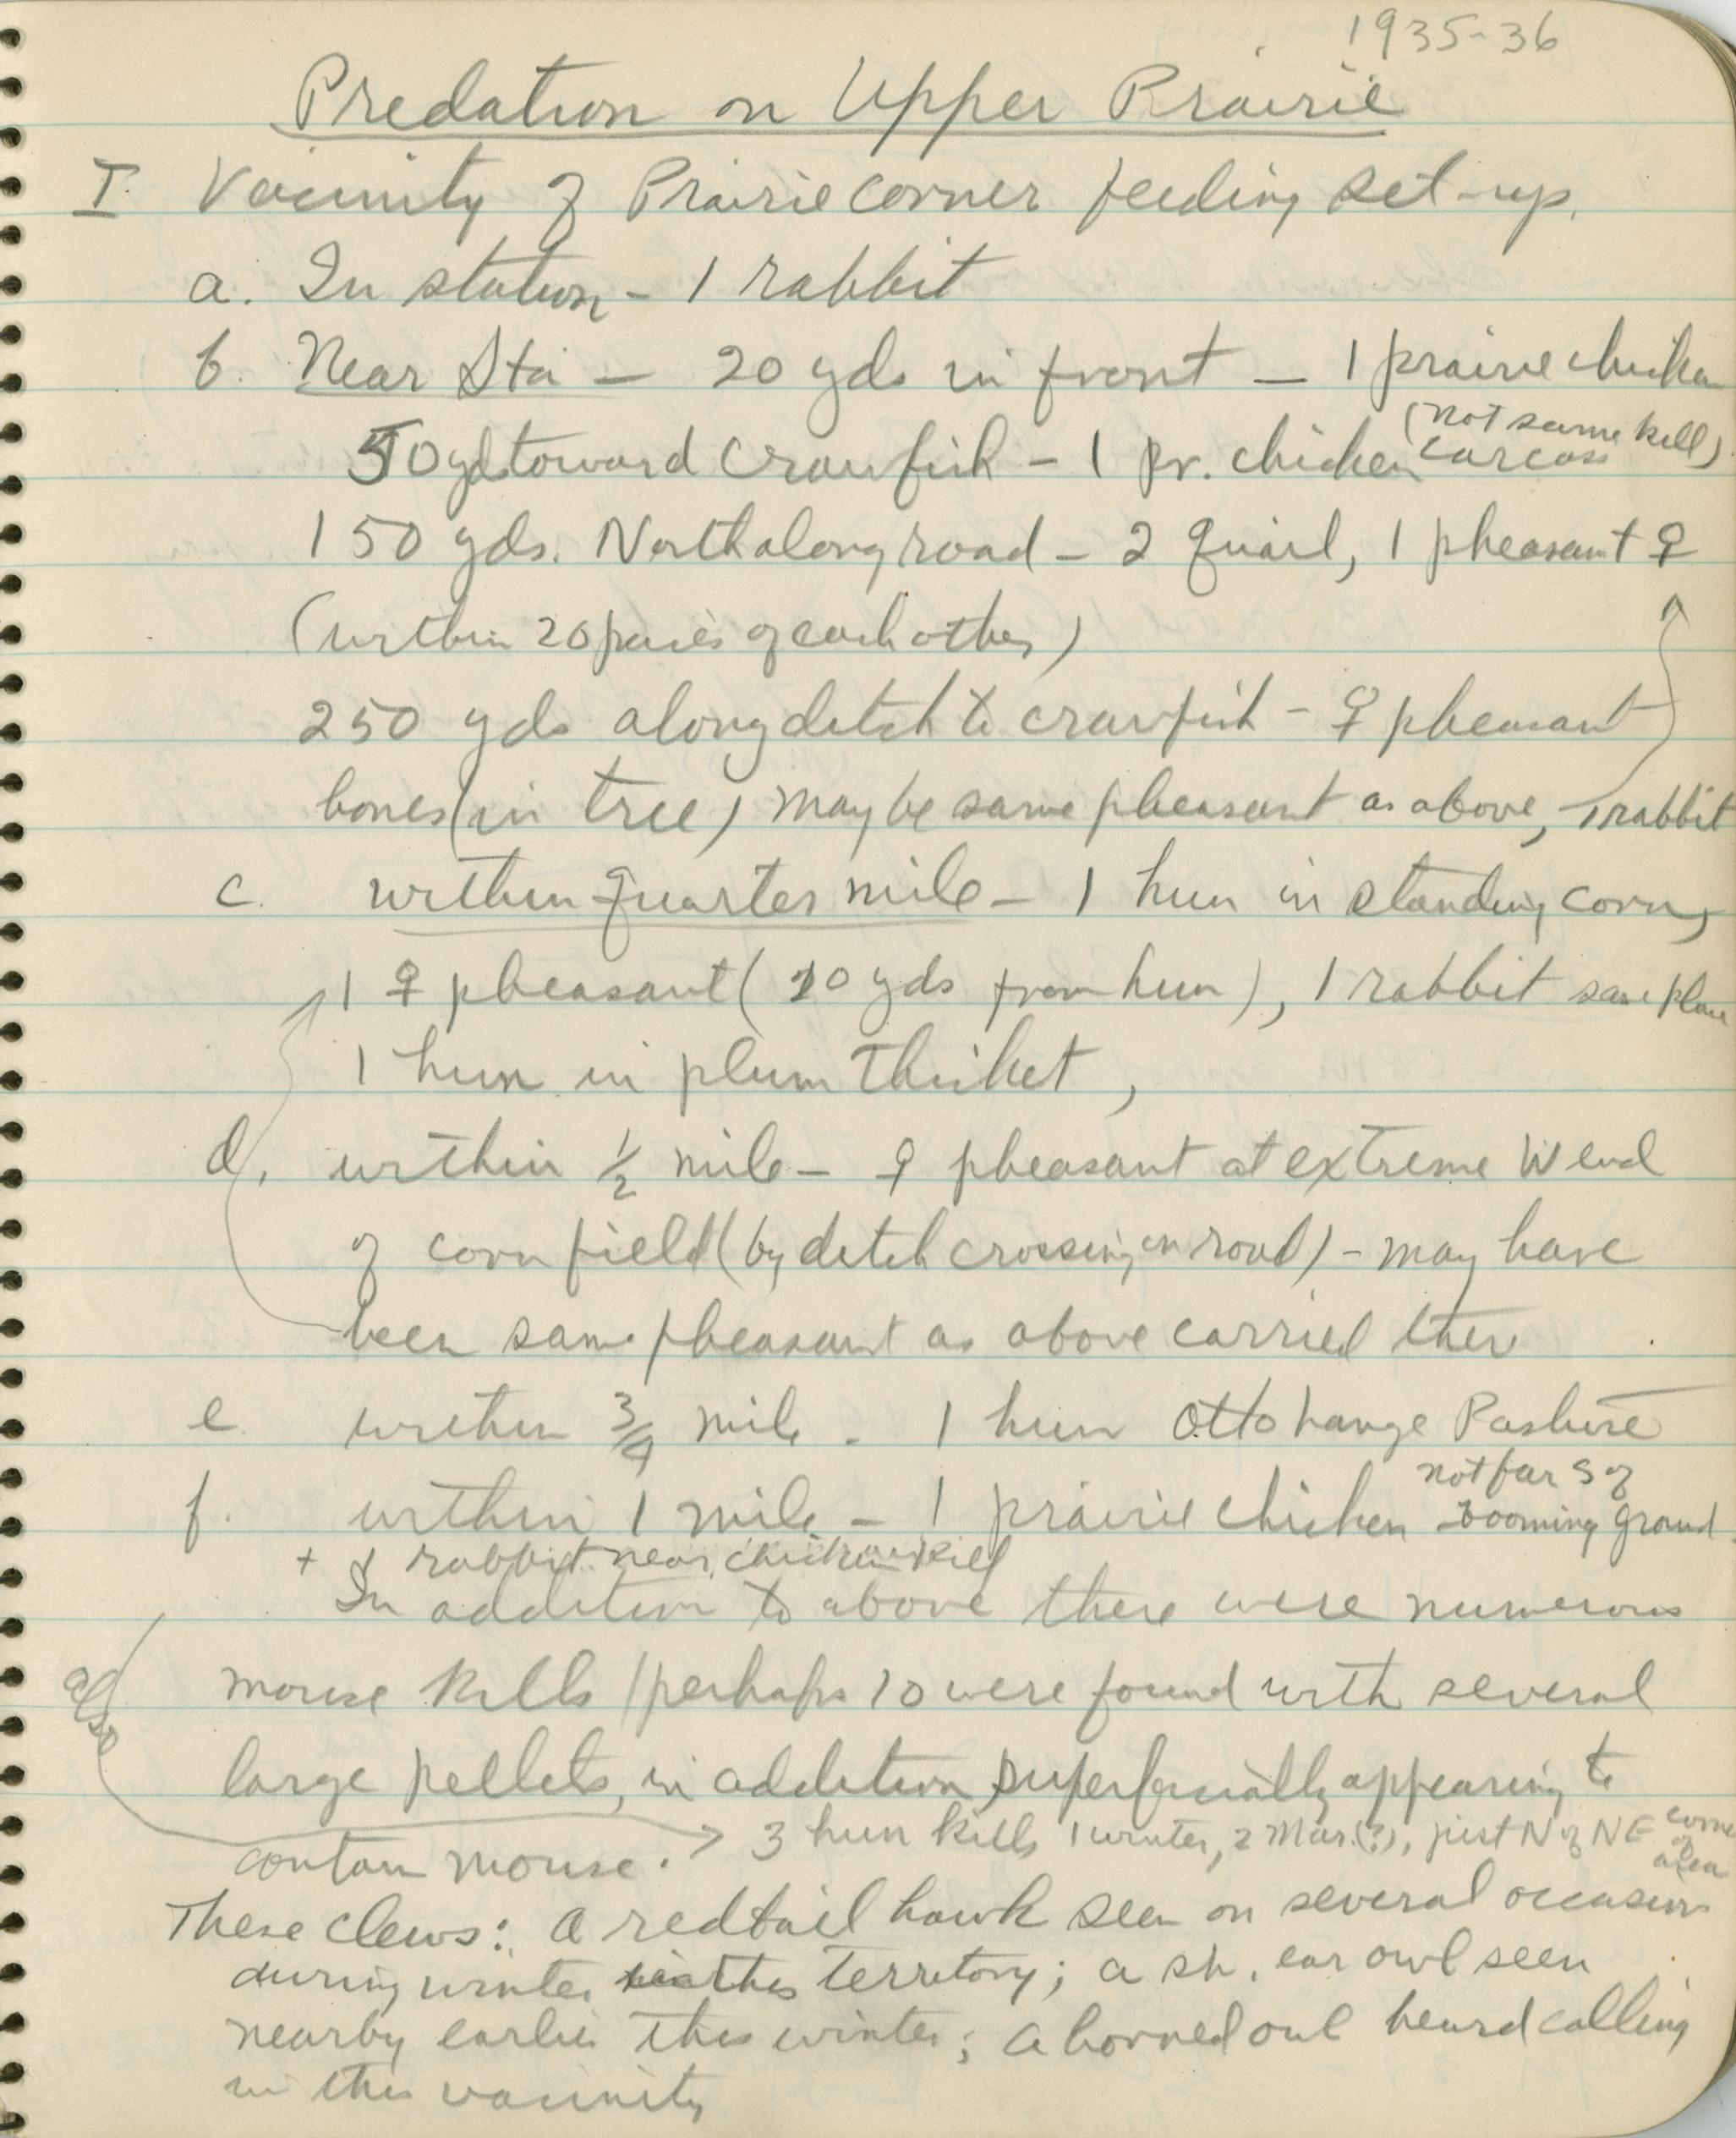 1935-36
Predation on Upper Prairie
I. Vacinity of Prairie corner feeding set-up.
a. In station - 1 rabbit
b. Near Sta - 20 yds in front - 1 prairie chicken
(not same kill)
50 yds toward Crawfish - 1 pr. chicken carcass
150 yds. North along road - 2 quail, 1 pheasant ♀
(within 20 paces of each other)
250 yds along ditch to crawfish - ♀ pheasant
bones (in tree) may be same pheasant as above, 1 rabbit
c. within quarter mile - 1 hun in standing corn,
1 ♀ pheasant (20 yds from hun), 1 rabbit same place
1 hun in plum thicket,
d. within 1/2 mile - ♀ pheasant at extreme W end
of corn field (by ditch crossing on road) - may have
been same pheasant as above carried there
e. within 3/4 mile - 1 hun Otto hange Pasture
not far S of
f. within 1 mile - 1 prairie chicken booming ground
+ 1 rabbit near chicken kill
In addition to above there were numerous
mouse kills (perhaps 10 were found with several
also
large pellets, in addition, superficially appearing to
3 hun kills 1 winter, 2 Mar.(?), just N of NE corner of area
contain mouse.
These clews: a redtail hawk seen on several occasions
during winter this territory; a sh. ear owl seen
nearby earlier this winter; a horned owl heard calling
in this vacinity